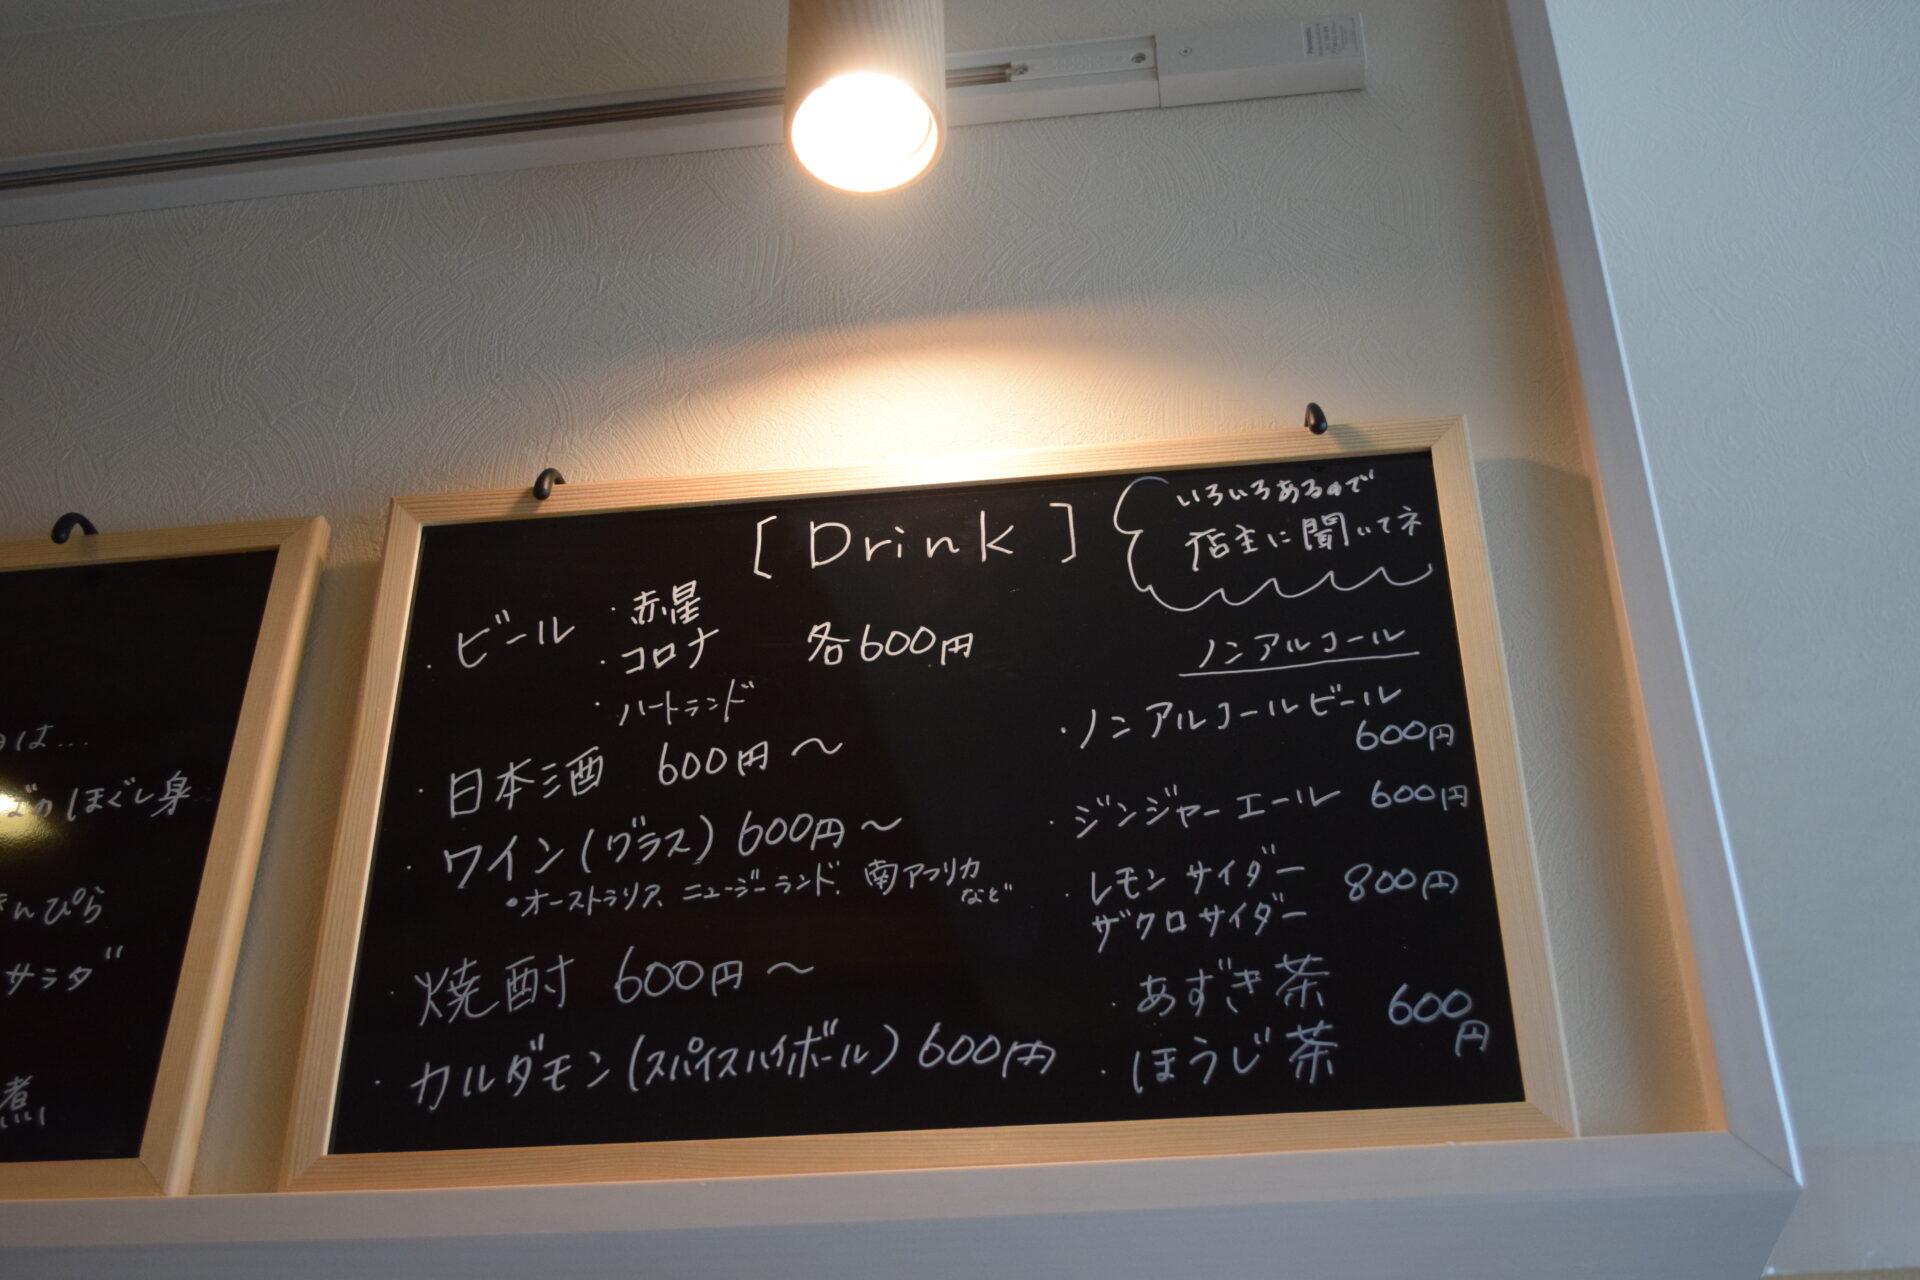 は…
のほぐし身
きんぴら
サラダ
煮
[Drink]
いろいろあるので
店主に聞いてネ
・ビール ・赤星
・コロナ 各600円
・ハートランド
・日本酒 600円～
・ワイン(グラス) 600円～
・オーストラリア、ニュージーランド、南アフリカ
など
・焼酎 600円～
・カルダモン(スパイスハイボール) 600円
ノンアルコール
・ノンアルコールビール
600円
・ジンジャーエール 600円
・レモンサイダー 800円
ザクロサイダー
・あずき茶 600
・ほうじ茶 円